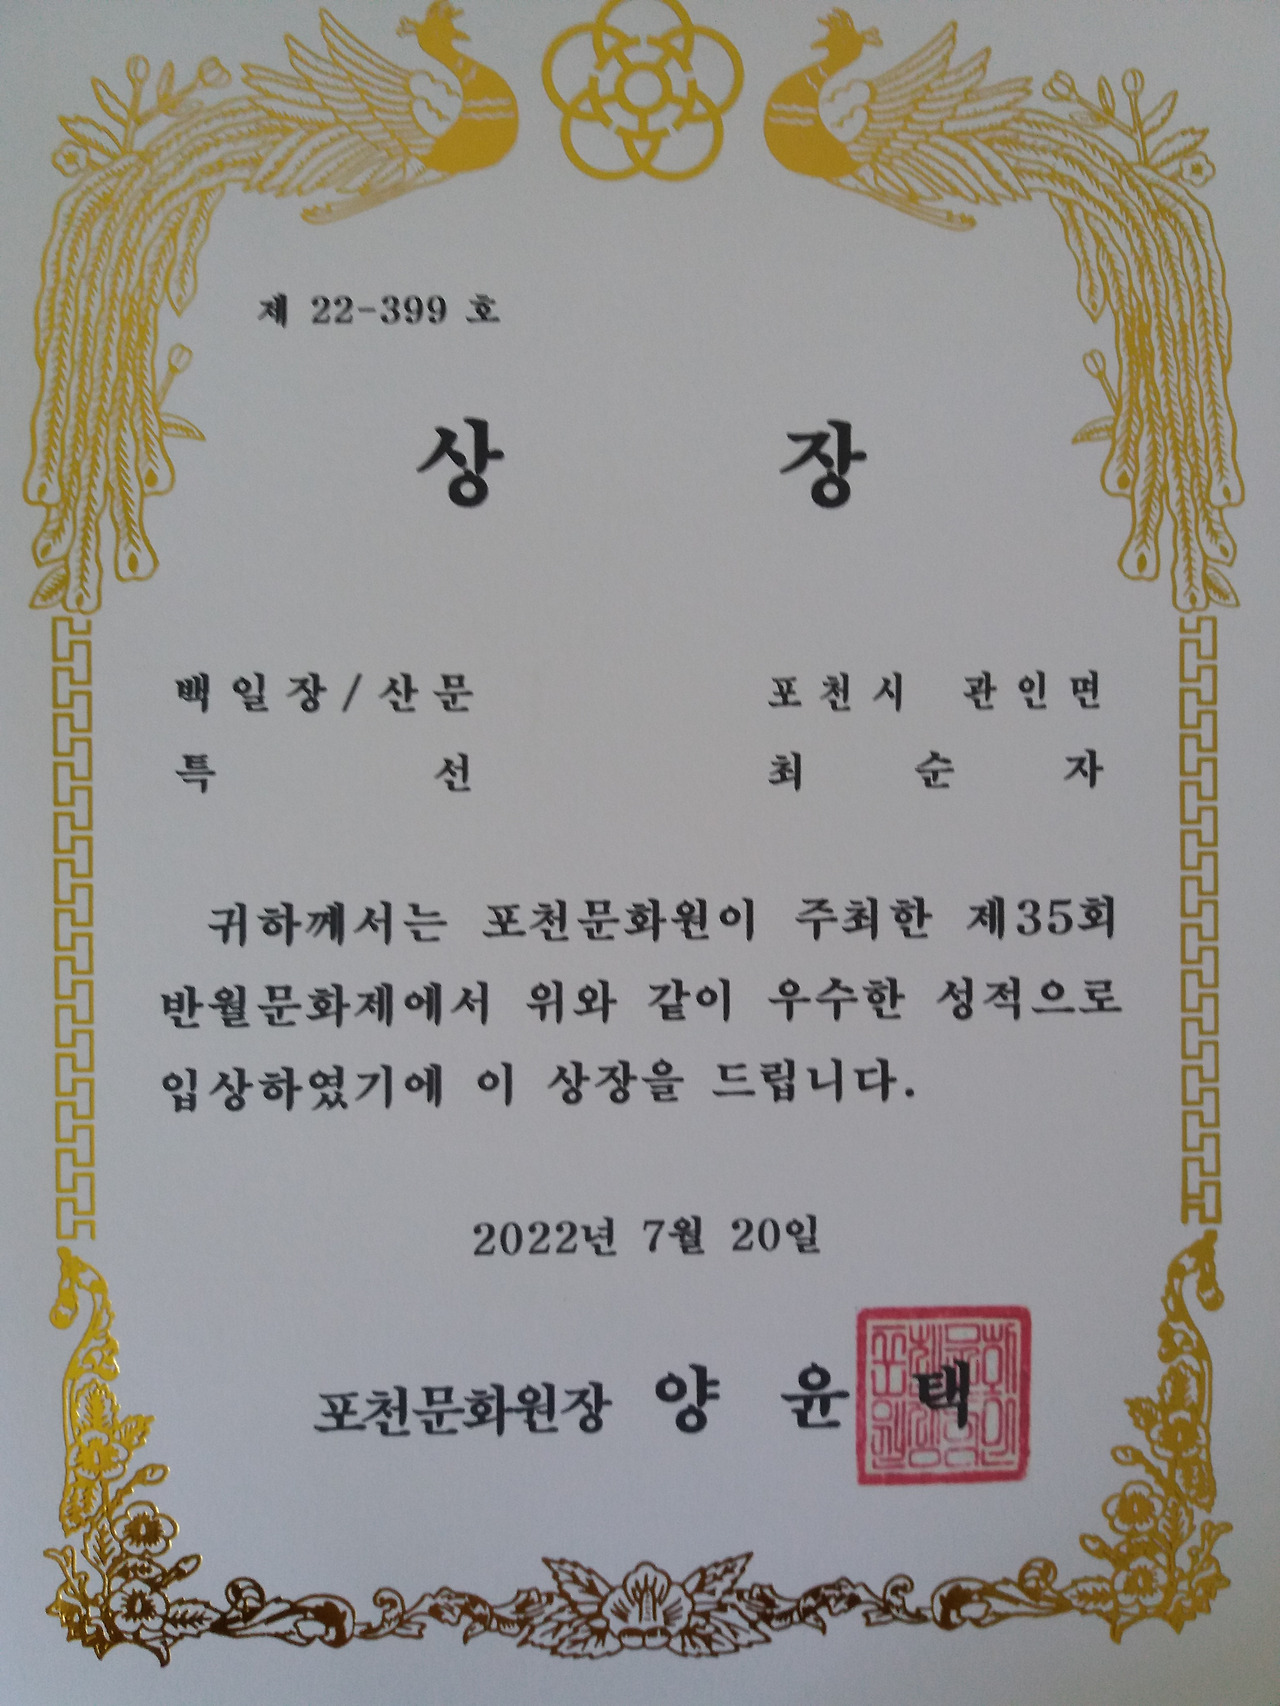 제 22-399 호
상 장
백일장/산문 포천시 관인면
특 선 최 순 자
귀하께서는 포천문화원이 주최한 제35회
반월문화제에서 위와 같이 우수한 성적으로
입상하였기에 이 상장을 드립니다.
2022년 7월 20일
포천문화원장 양 윤 택